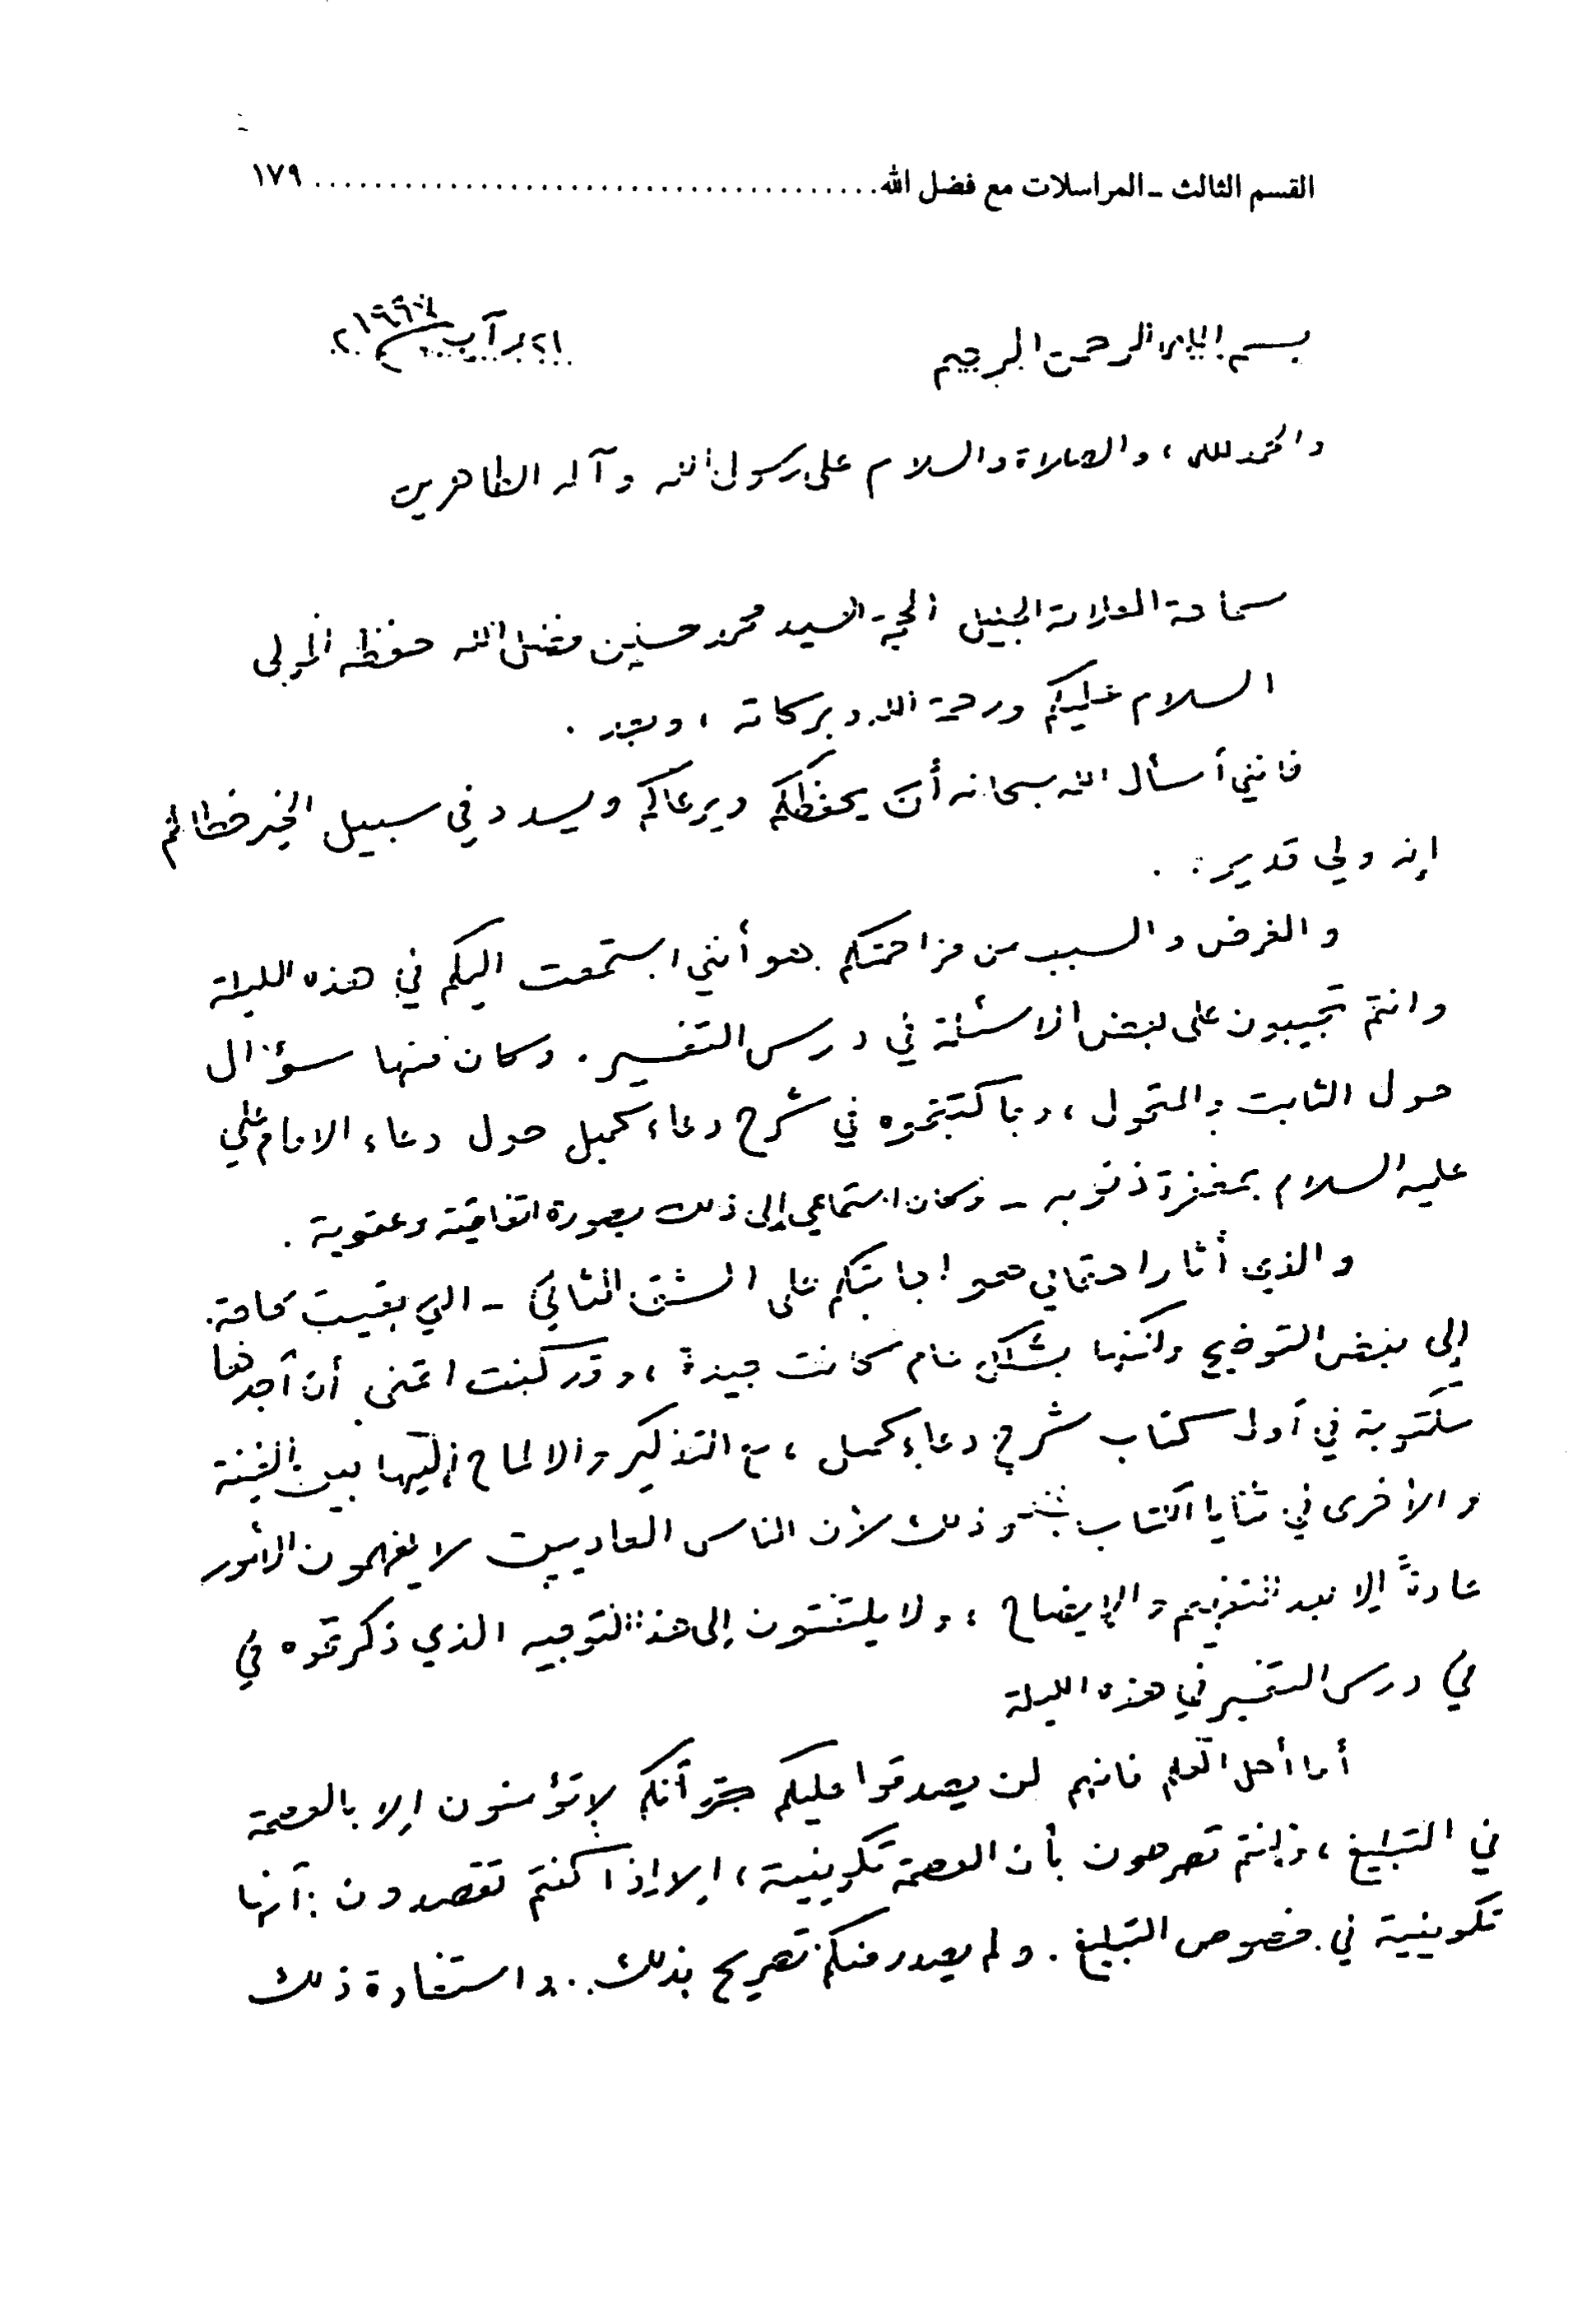 القسم الثالث ـ المراسلات مع فضل الله ........................................ ١٧٩
بسم الله الرحمن الرحيم
٢١ / آب / ١٩٩٧ م
والحمد لله، والصلاة والسلام على رسول الله وآله الطاهرين
سماحة العلامة الجليل الحجة السيد محمد حسين فضل الله حفظه المولى
السلام عليكم ورحمة الله وبركاته، وبعد.
فإنني أسأل الله سبحانه أن يحفظكم ويرعاكم ويسدد في سبيل الخير خطاكم
إنه ولي قدير.
والغرض والسبب من مزاحمتكم هو أنني استمعت اليكم في هذه الليلة
وانتم تجيبون على بعض الاسئلة في درس التفسير. وكان منها سؤال
حول الثابت والمتحول، وما كتبتموه في شرح دعاء كميل حول دعاء الامام علي
عليه السلام بمغفرة ذنوبه ـ وكان استماعي إلى ذلك بصورة اتفاقية وعفوية.
والذي أثار اهتمامي هو اجابتكم على الشق الثاني ـ التي بقيت بحاجة
إلى بعض التوضيح ولكنها بشكل عام كانت جيدة، وقد كنت اتمنى أن أجدها
مكتوبة في أول كتاب شرح دعاء كميل، مع التذكير والالماح إليها بين الفينة
والأخرى في ثنايا الكتاب وذلك لأن الناس العاديين لا يفهمون الأمور
عادةً إلا بعد التفهيم والإيضاح، ولا يلتفتون إلى هذا التوجيه الذي ذكرتموه في
في درس التفسير في هذه الليلة
أما أهل العلم فانهم لن يصدقوا عليكم أنكم لا تؤمنون إلا بالعصمة
في التبليغ، وانتم تصرحون بأن العصمة تكوينية، إلا إذا كنتم تقصدون: أنها
تكوينية في خصوص التبليغ. ولم يصدر منكم تصريح بذلك.. واستفادة ذلك